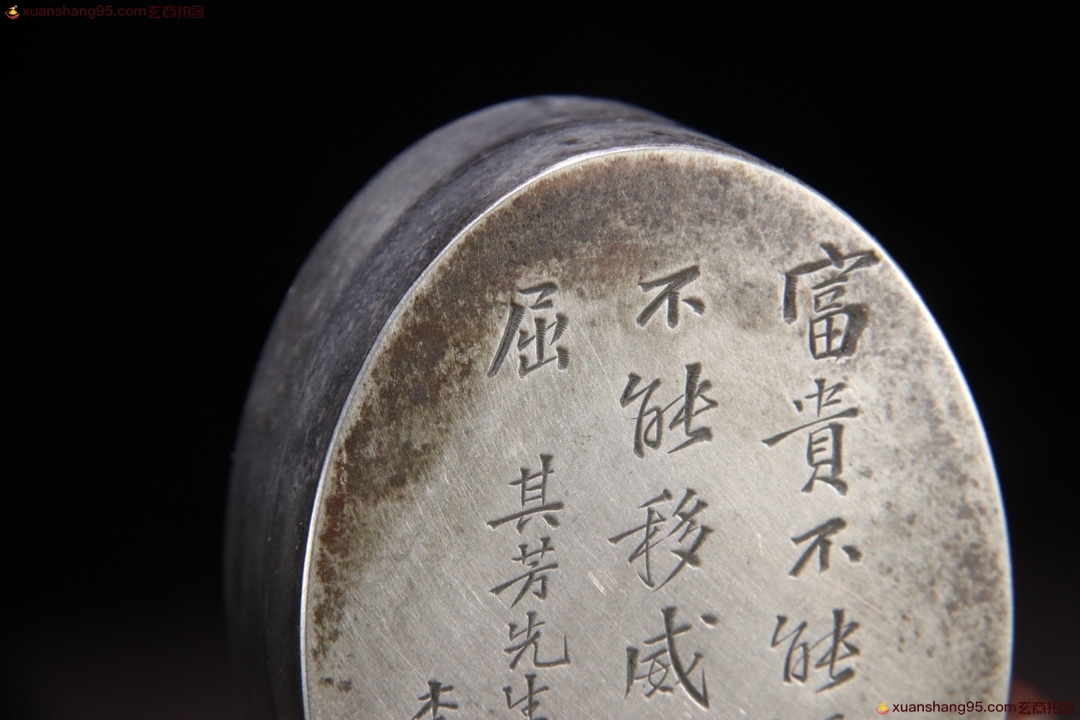 xuanshang95.com玄商拍客
富貴不能
不能移威
屈 其芳先生
李
xuanshang95.com玄商拍客